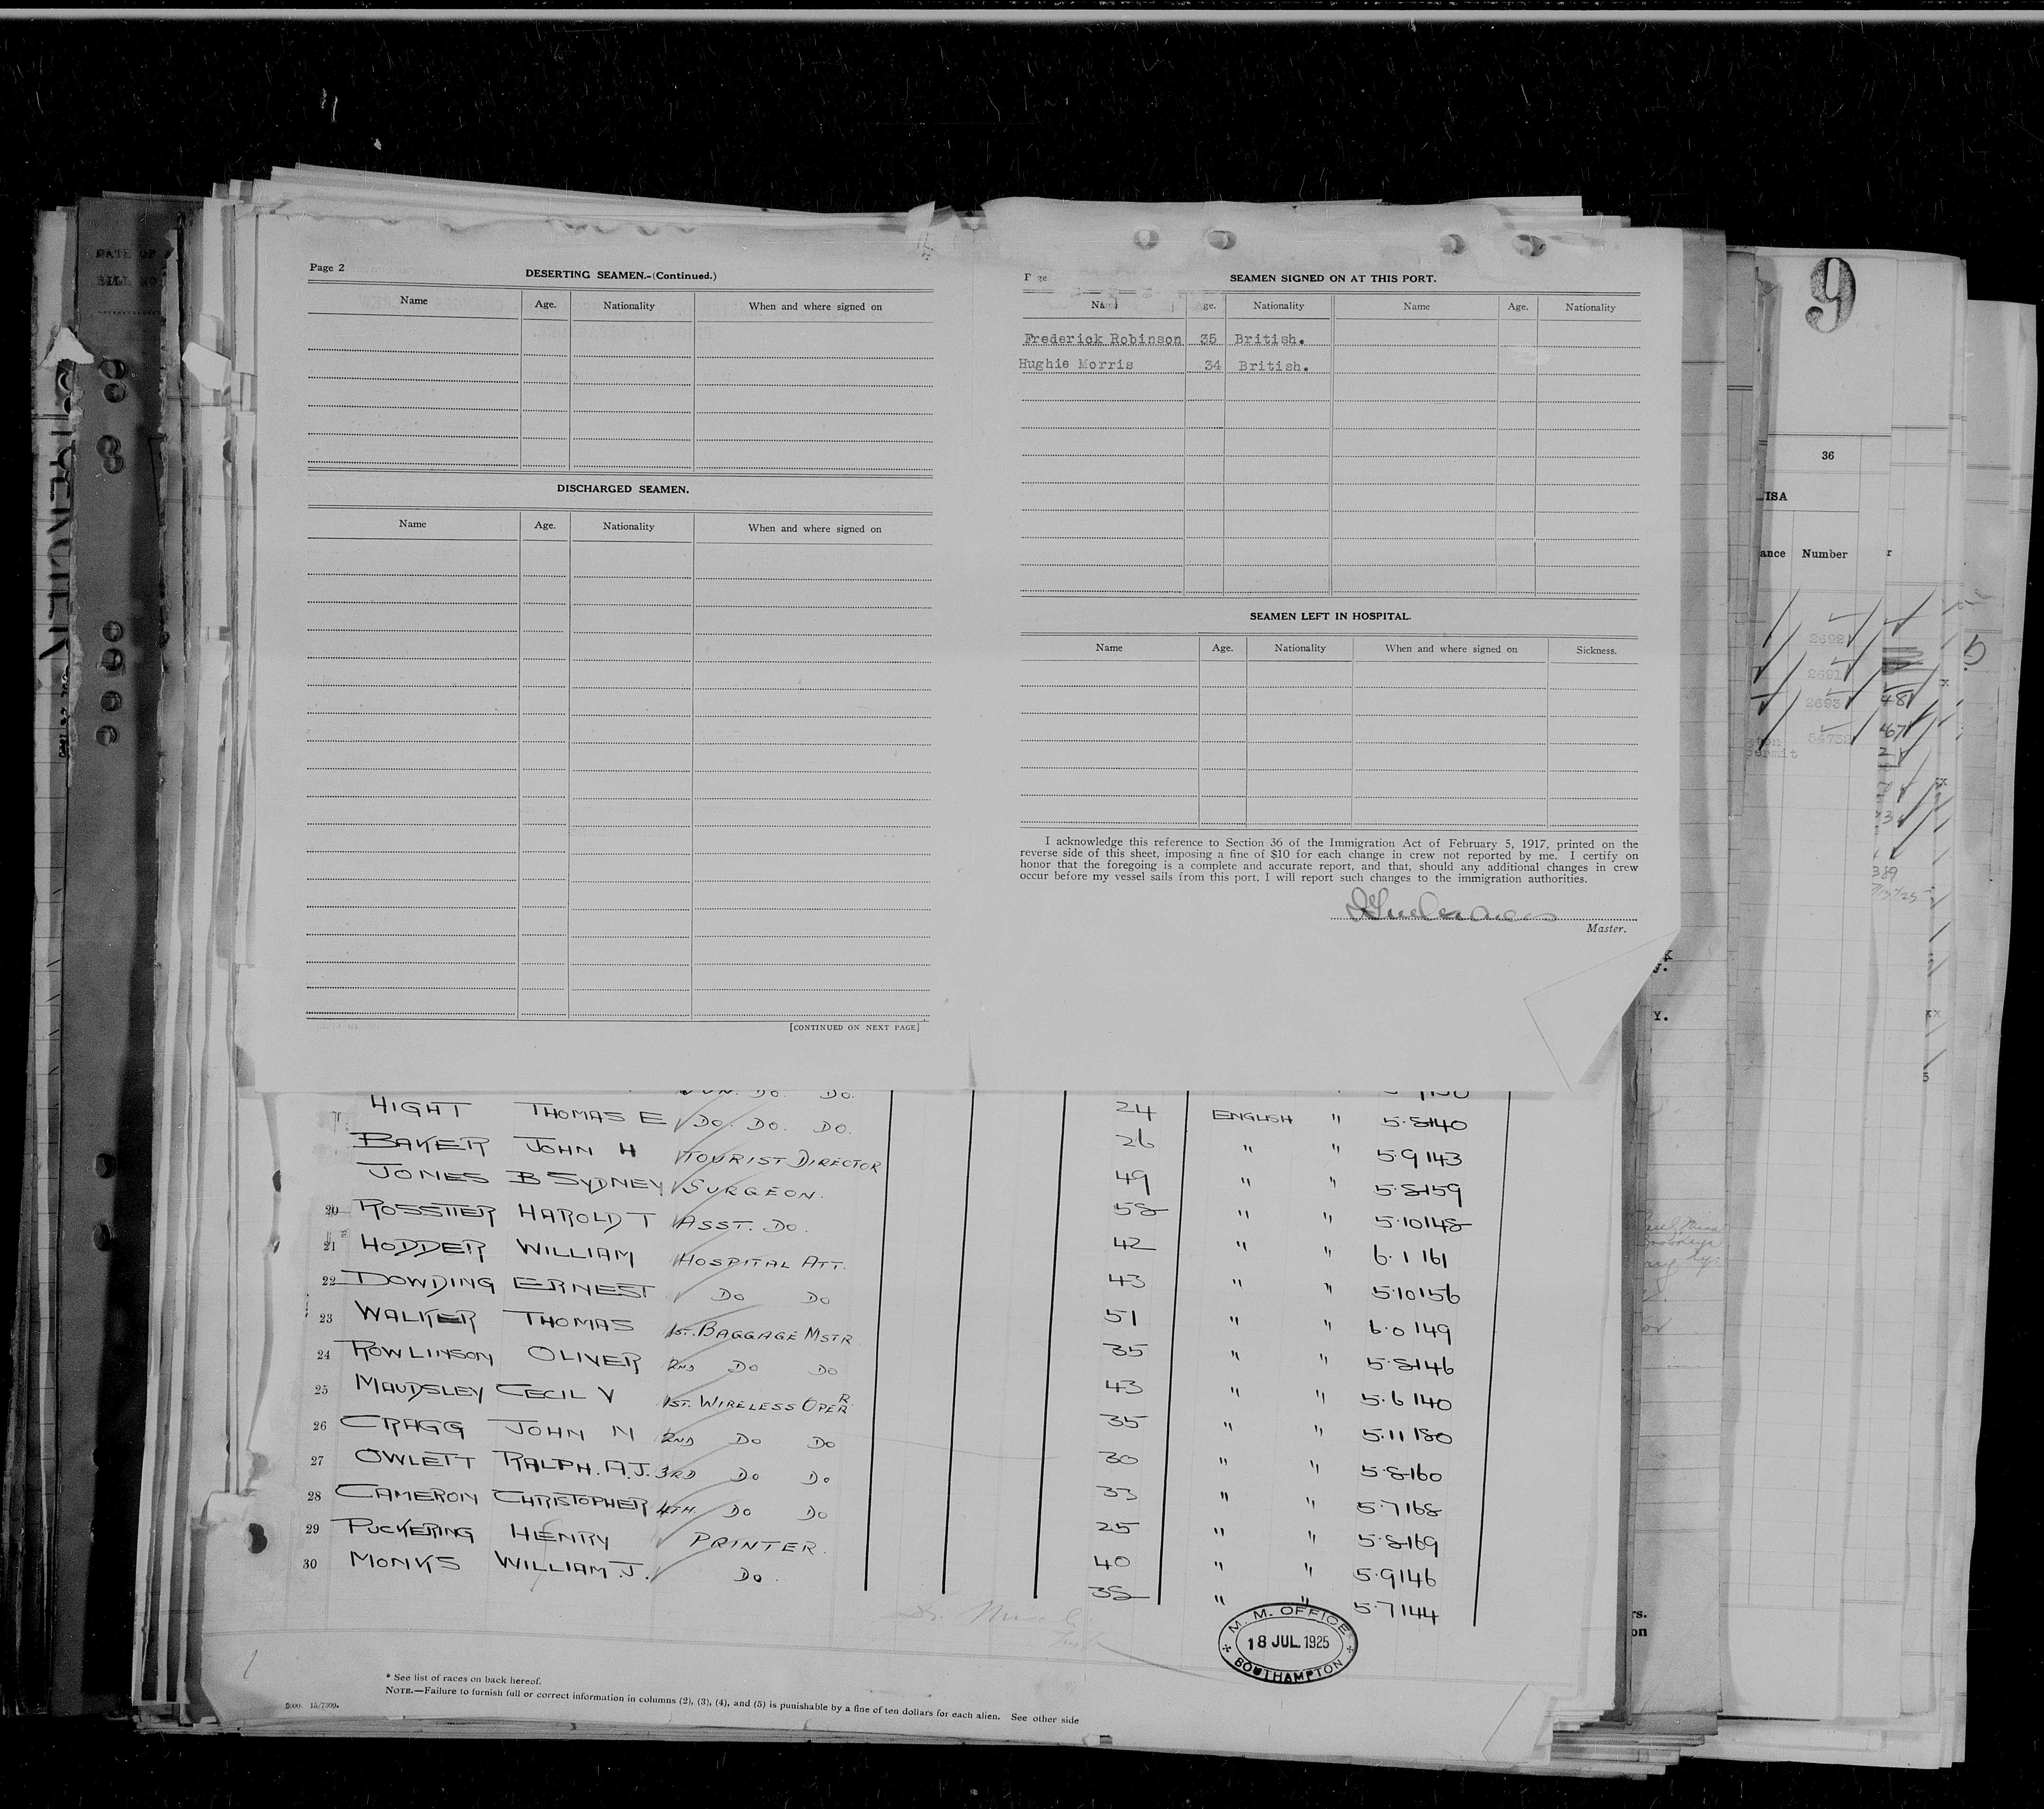 Page 2
DESERTING SEAMEN.-(Continued.)
Name Age. Nationality When and where signed on
DISCHARGED SEAMEN.
Name Age. Nationality When and where signed on
[CONTINUED ON NEXT PAGE]
SEAMEN SIGNED ON AT THIS PORT.
Age. Nationality Name Age. Nationality
Frederick Robinson 35 British.
Hughie Morris 34 British.
SEAMEN LEFT IN HOSPITAL.
Name Age. Nationality When and where signed on Sickness.
I acknowledge this reference to Section 36 of the Immigration Act of February 5, 1917, printed on the
reverse side of this sheet, imposing a fine of $10 for each change in crew not reported by me. I certify on
honor that the foregoing is a complete and accurate report, and that, should any additional changes in crew
occur before my vessel sails from this port, I will report such changes to the immigration authorities.
Master.
HIGHT THOMAS E DO. DO. DO. 24 ENGLISH " 5.8 140
BAKER JOHN H TOURIST DIRECTOR 26 " " 5.9 143
JONES B SYDNEY SURGEON. 49 " " 5.8 159
20 ROSSITER HAROLD T ASST. DO. 58 " " 5.10 148
21 HODDER WILLIAM HOSPITAL ATT. 42 " " 6.1 161
22 DOWDING ERNEST DO DO 43 " " 5.10 156
23 WALKER THOMAS 1ST. BAGGAGE MSTR 51 " " 6.0 149
24 ROWLINSON OLIVER 2ND DO DO 35 " " 5.8 146
25 MAUDSLEY CECIL V 1ST. WIRELESS OPERR 43 " " 5.6 140
26 CRAGG JOHN M 2ND DO DO 35 " " 5.11 180
27 OWLETT RALPH. A.J. 3RD DO DO 30 " " 5.8 160
28 CAMERON CHRISTOPHER 4TH. DO DO 33 " " 5.7 168
29 PUCKERING HENRY PRINTER. 25 " " 5.8 169
30 MONKS WILLIAM.J. DO. 40 " " 5.9 146
38 " " 5.7 144
M. M. OFFICE
18 JUL. 1925
SOUTHAMPTON
* See list of races on back hereof.
NOTE.—Failure to furnish full or correct information in columns (2), (3), (4), and (5) is punishable by a fine of ten dollars for each alien. See other side
9
36
ance Number
2692
2691
2693
54732